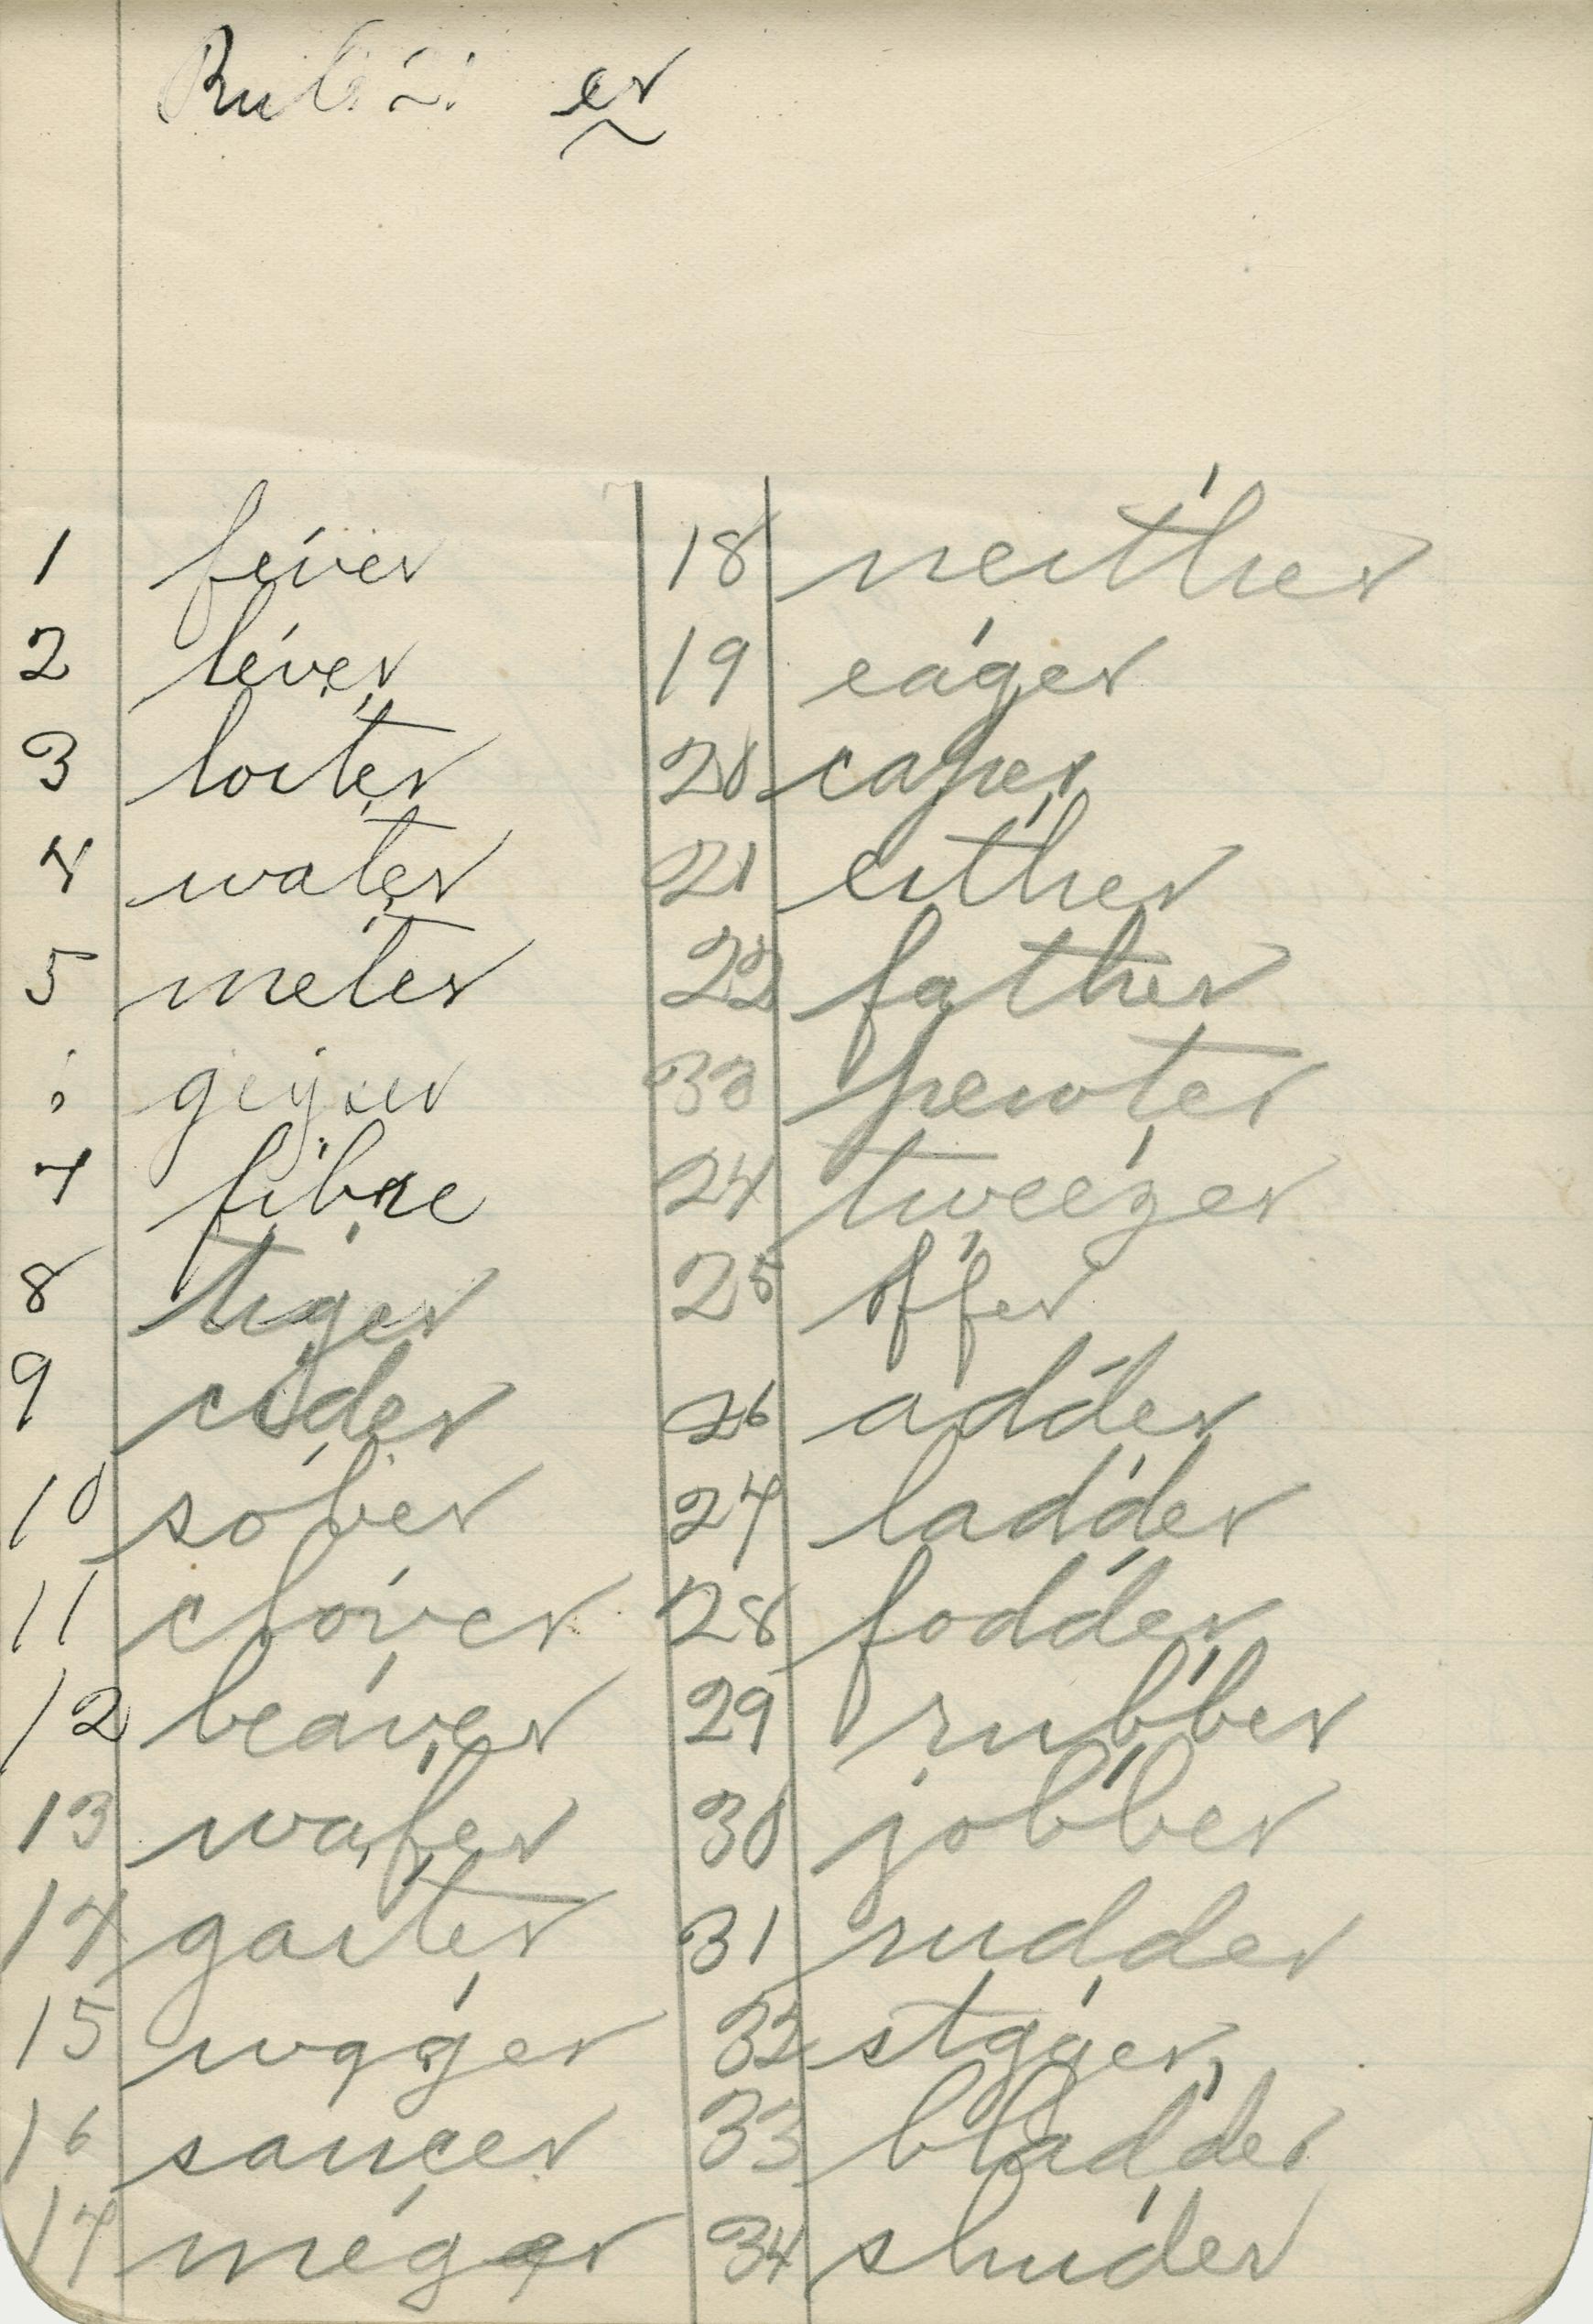 Rule er
1 fever
2 lever
3 loiter
4 water
5 meter
geyser
7 fibre
8 tiger
9 cider
10 sober
11 clover
12 beaver
13 wafer
14 gaiter
15 wager
16 saucer
17 meger
18 neither
19 eager
20 caper
21 either
22 father
33 pewter
24 tweezer
25 offer
26 adder
27 ladder
28 fodder
29 rubber
30 jobber
31 rudder
32 stager
33 bladder
34 shuder